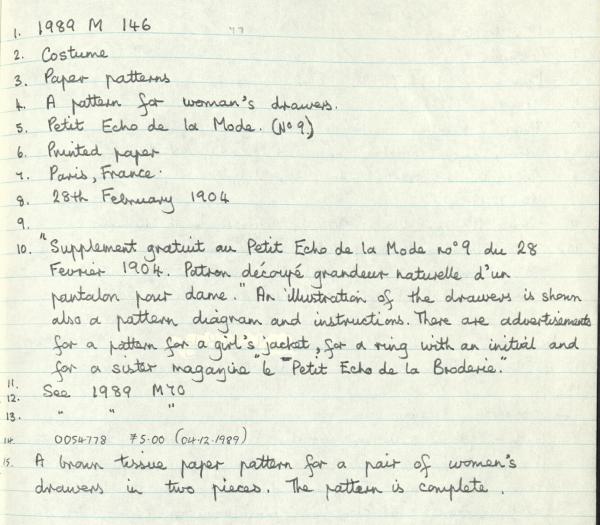 1. 1989 M 146
2. Costume
3. Paper patterns
4. A pattern for woman's drawers.
5. Petit Echo de la Mode. (No 9)
6. Printed paper
7. Paris, France.
8. 28th February 1904
9.
10. "Supplement gratuit au Petit Echo de la Mode no°9 du 28
Fevrier 1904. Patron découpé grandeur naturelle d'un
pantalon pour dame." An illustration of the drawers is shown
also a pattern diagram and instructions. There are advertisements
for a pattern for a girl's jacket, for a ring with an initial and
for a sister magazine "le "Petit Echo de la Broderie."
11.
12. See 1989 M70
13. " " "
14. 0054778 F5.00 (04.12.1989)
15. A brown tissue paper pattern for a pair of women's
drawers in two pieces. The pattern is complete.